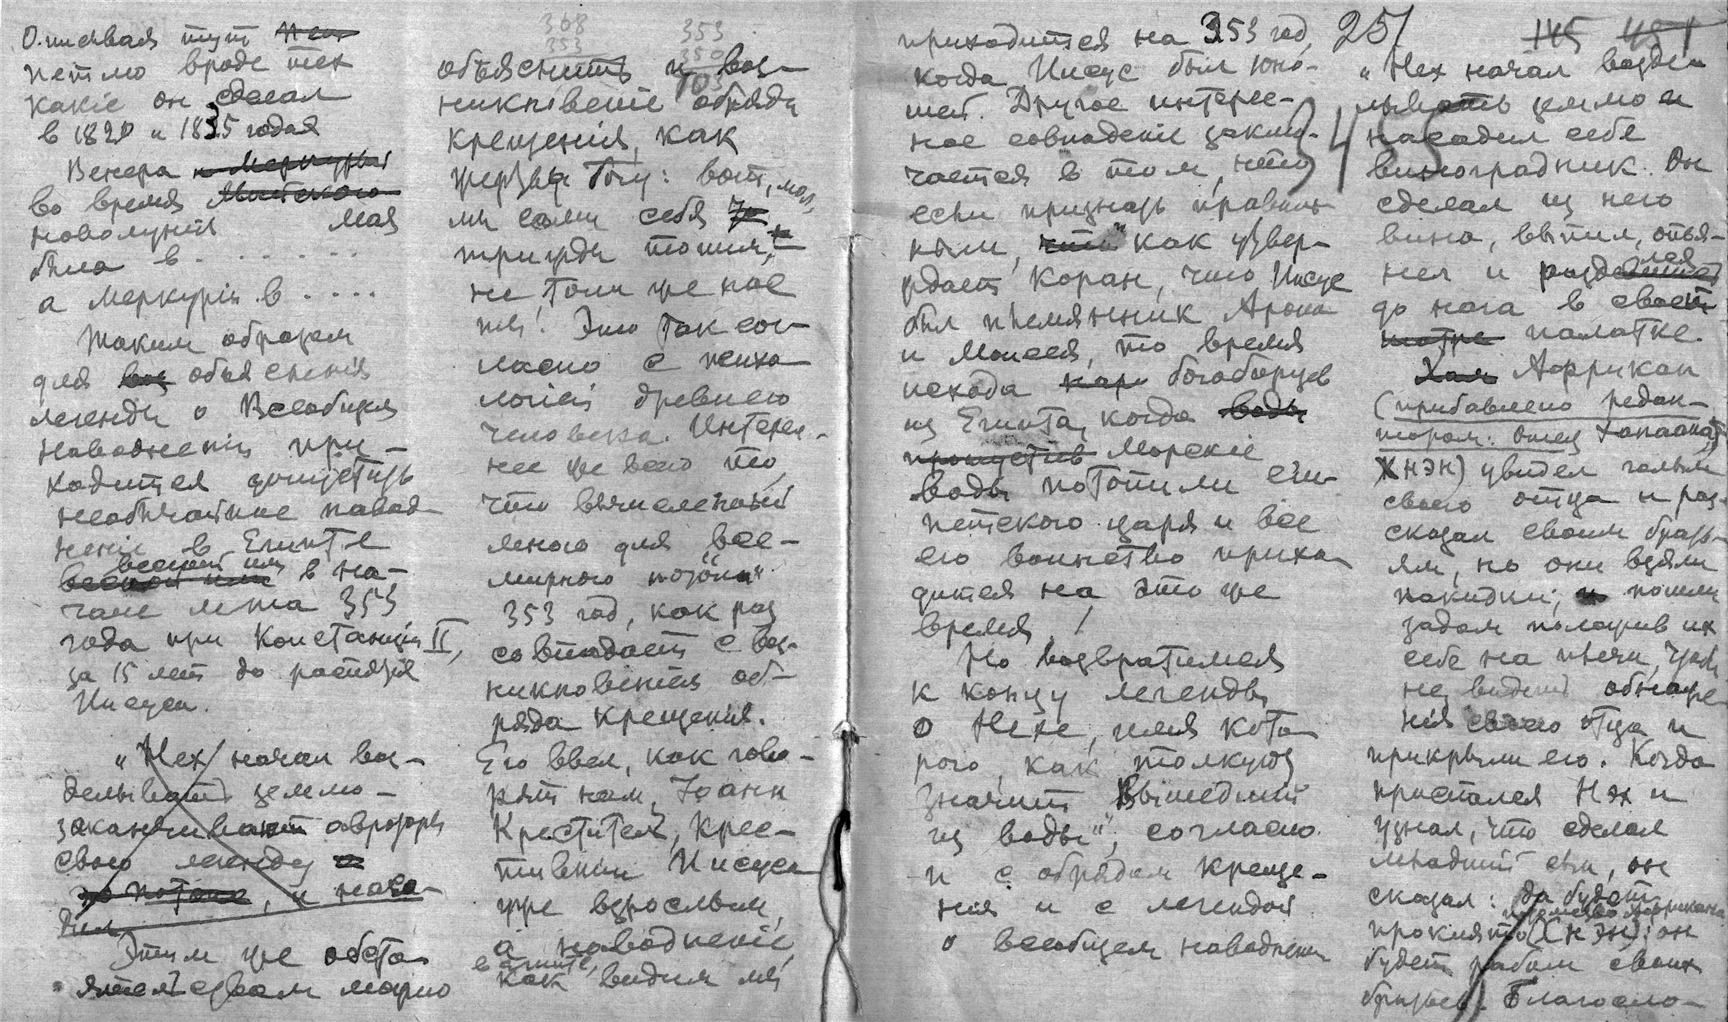 Описывая тут
петлю вроде тех
какіе он сделал
в 1820 и 1835 годах
Венера и Меркурій
во время Майского
новолунія мая
была в . . . . . .
а Меркурій в . . . .
Таким образом
для объясненія
легенды о Всеобщем
Наводненіи при-
ходится допустить
необычайное навод-
неніе в Египте
весной или
весной или в на-
чале лета 353
года при Констанціи II,
за 15 лет до распятія
Иисуса.
"Нех" начал воз-
делывать землю —
заканчивают авторы
свою легенду
о потопе, и наса-
дил
Этим же обсто-
ятельствам можно
368
353
353
350
703
объяснить и воз-
никновеніе обряда
крещенія, как
жертвы Богу: вот, мол,
мы сами себя
трижды топим,
не топи же нас
ты! Это так сог-
ласно с психо-
логіей древнего
человека. Интерес-
нее же всего то,
что вычисленный
мною для все-
мирного потопа
353 год, как раз
совпадает с воз-
никновеніем об-
ряда крещенія.
Его ввел, как гово-
рят нам, Іоанн
Креститель, крес-
тившій Иисуса
уже взрослым,
а наводненіе,
в Египте,
как видим мы
приходится на 353 год,
когда Иисус был юно-
шей. Другое интерес-
ное совпаденіе заклю-
чается в том, что
если признать правиль-
ным, что как утвер-
ждает Коран, что Иисус
был племянник Арона
и Моисея, то время
исхода богоборцев
из Египта, когда воды
пропустив Морскіе
воды потопили еги-
петского царя и все
его воинство прихо-
дится на это же
время!
Но возвратимся
к концу легенды
о Нехе, имя кото-
рого, как толкуют
значит "Вышедший
из воды", согласно
и с обрядом креще-
нія и с легендой
о всеобщем наводненіи
251
145 481
345
"Нех начал возде-
лывать землю и
насадил себе
виноградник. Он
сделал из него
вино, выпил, опья-
нел и разделся
до нага в своей
шатре палатке.
Хам Аффрикан
(прибавлено редак-
тором: отец Ханаана,
ХНЭН) увидел голым
своего отца и рас-
сказал своим брать-
ям, но они взяли
накидки; и пошли
задом положив их
себе на плечи, чтоб
не видеть обнаже-
нія своего отца и
прикрыли его. Когда
проспался Нэх и
узнал, что сделал
младшій сын, он
сказал: да будет
племя Аффрикана
проклято (ХНЭН): он
будет рабом своих
братьев. Благосло-